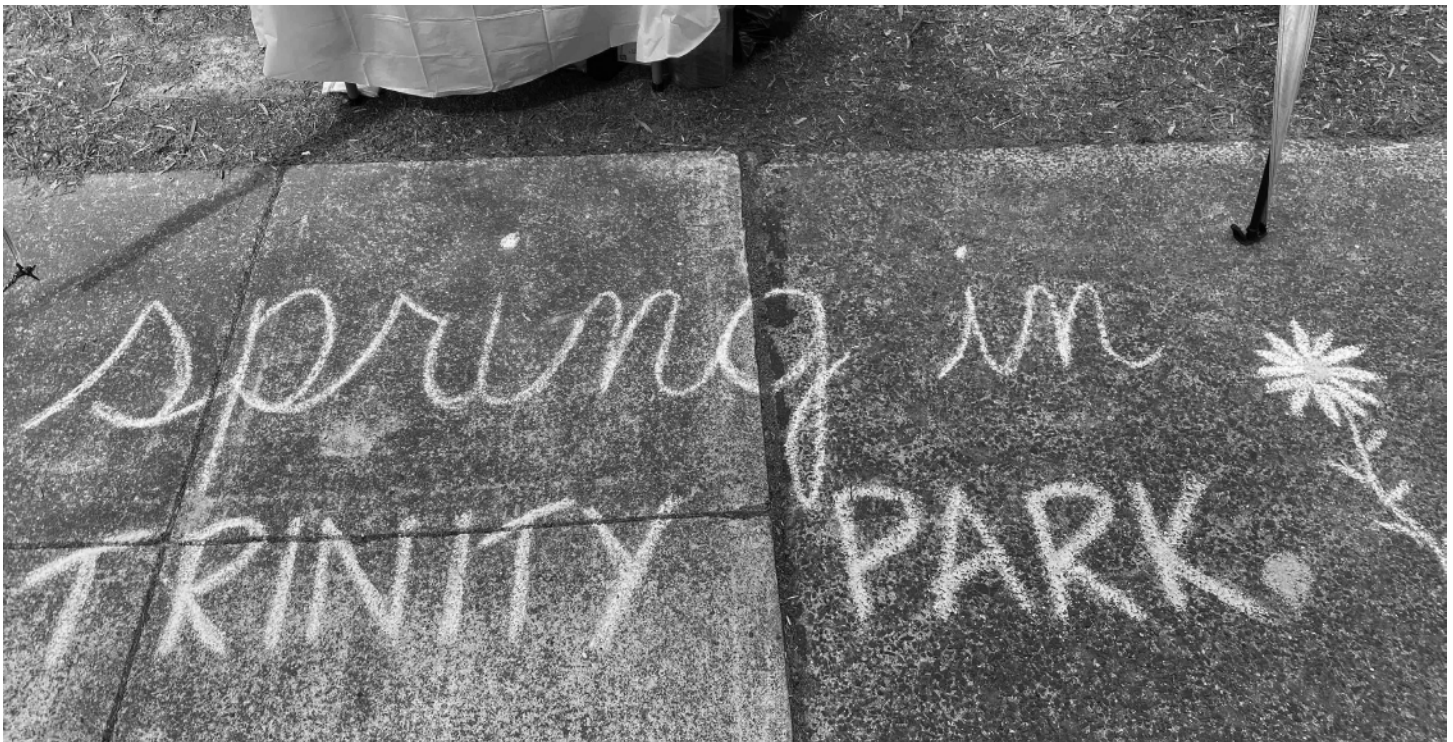 spring in
TRINITY PARK.